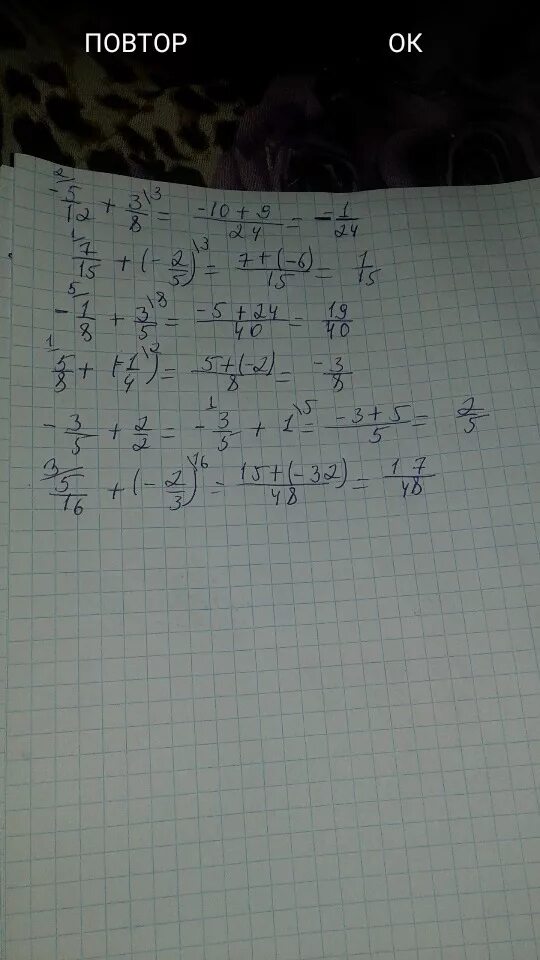 ПОВТОР ОК
2/ -5/12 + 3/8 \3 = (-10+9)/24 = -1/24
1/ 7/15 + (-2/5) \3 = (7+(-6))/15 = 1/15
5/ -1/8 + 3/5 \8 = (-5+24)/40 = 19/40
1/ 5/8 + (-1/4) \2 = (5+(-2))/8 = -3/8
-3/5 + 2/2 = -3/5 1/ + 1 \5 = (-3+5)/5 = 2/5
3/ 5/16 + (-2/3) \16 = (15+(-32))/48 = 17/48